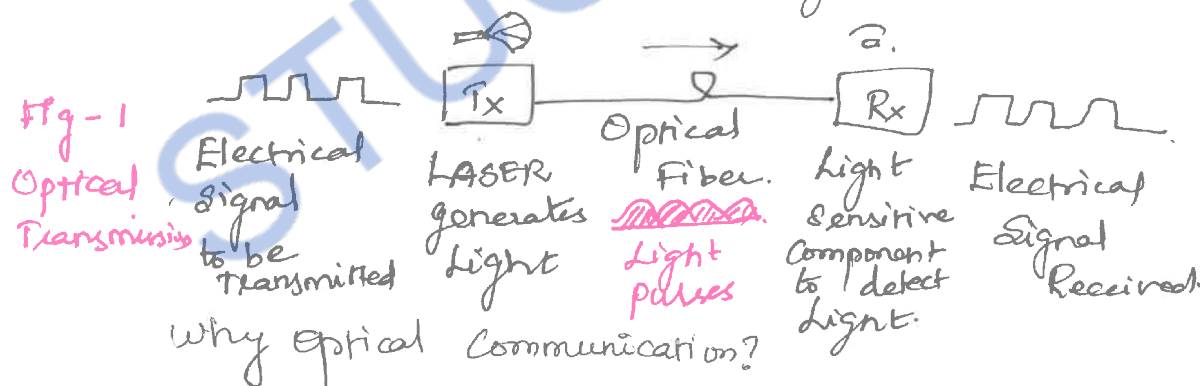 Fig-1
Optical
Transmission
Electrical
Signal
to be
Transmitted
Tx
LASER
generates
Light
Optical
Fiber.
Light
pulses
Rx
Light
Sensitive
Component
to detect
Light.
Electrical
Signal
Received.
Why Optical Communication?